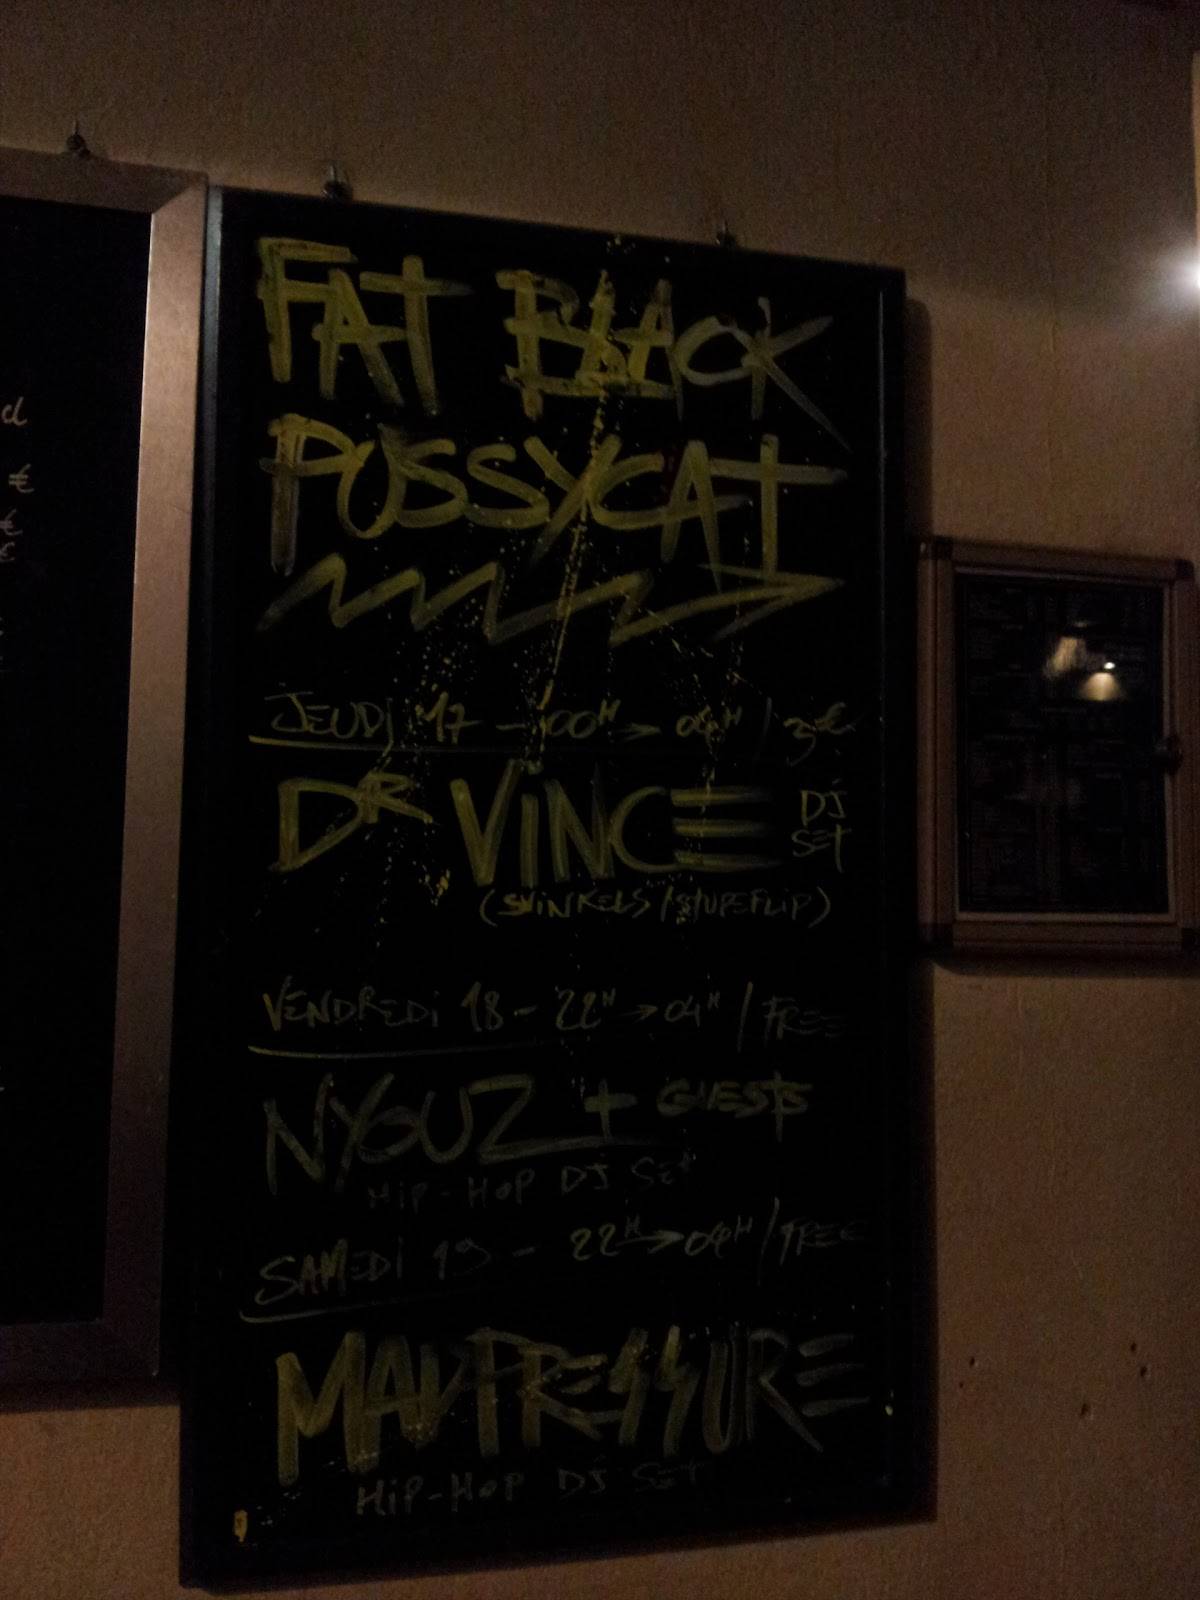 d
€
€
€
FAT BLACK
PUSSYCAT
JEUDI 17 - 00H → 04H / 3€
DR VINCE DJ SET
(SVINKELS / STUPEFLIP)
VENDREDI 18 - 22H → 04H / FREE
NYGUZ + GUESTS
HIP-HOP DJ SET
SAMEDI 19 - 22H → 04H / FREE
HIP-HOP DJ SET